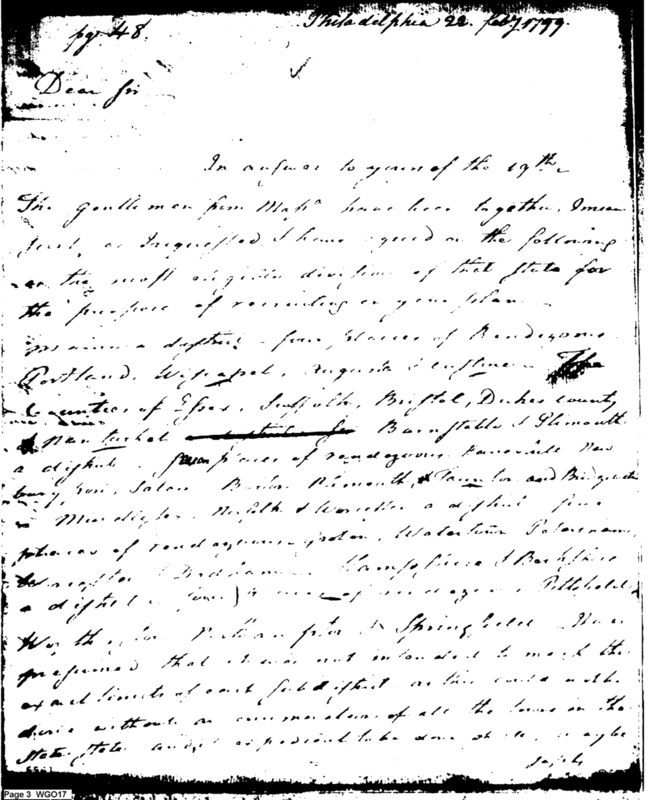 pg 48.
Philadelphia 22. feby 1799.
Dear Sir
In answer to yours of the 19th
The Gentlemen from Massa have been together, I mean
as I requested, I have agreed on the following
as the most eligible division of that State for
the purpose of recruiting on your plan
a district four places of Rendezvous
Portland, Wiscasset, Augusta & Castine The
Counties of Essex, Suffolk, Bristol, Dukes county
& Nantucket Barnstable & Plimouth
a district. places of rendezvous Haverhill New
bury port, Salem Boston Plimouth, & Taunton and Bridgewater
Middlesex, Norfolk & Worcester a district five
places of rendezvous Groton, Watertown Petersham,
Worcester & Dedham Hampshire & Berkshire
a district four places of rendezvous Pittsfield
Northampton & Springfield
presumed that it was not intended to mark the
exact limits of each Subdistrict as this could not be
done without an enumeration of all the towns in the
State and expedient to be done at all, maybe
safely
Page 3 WGO17